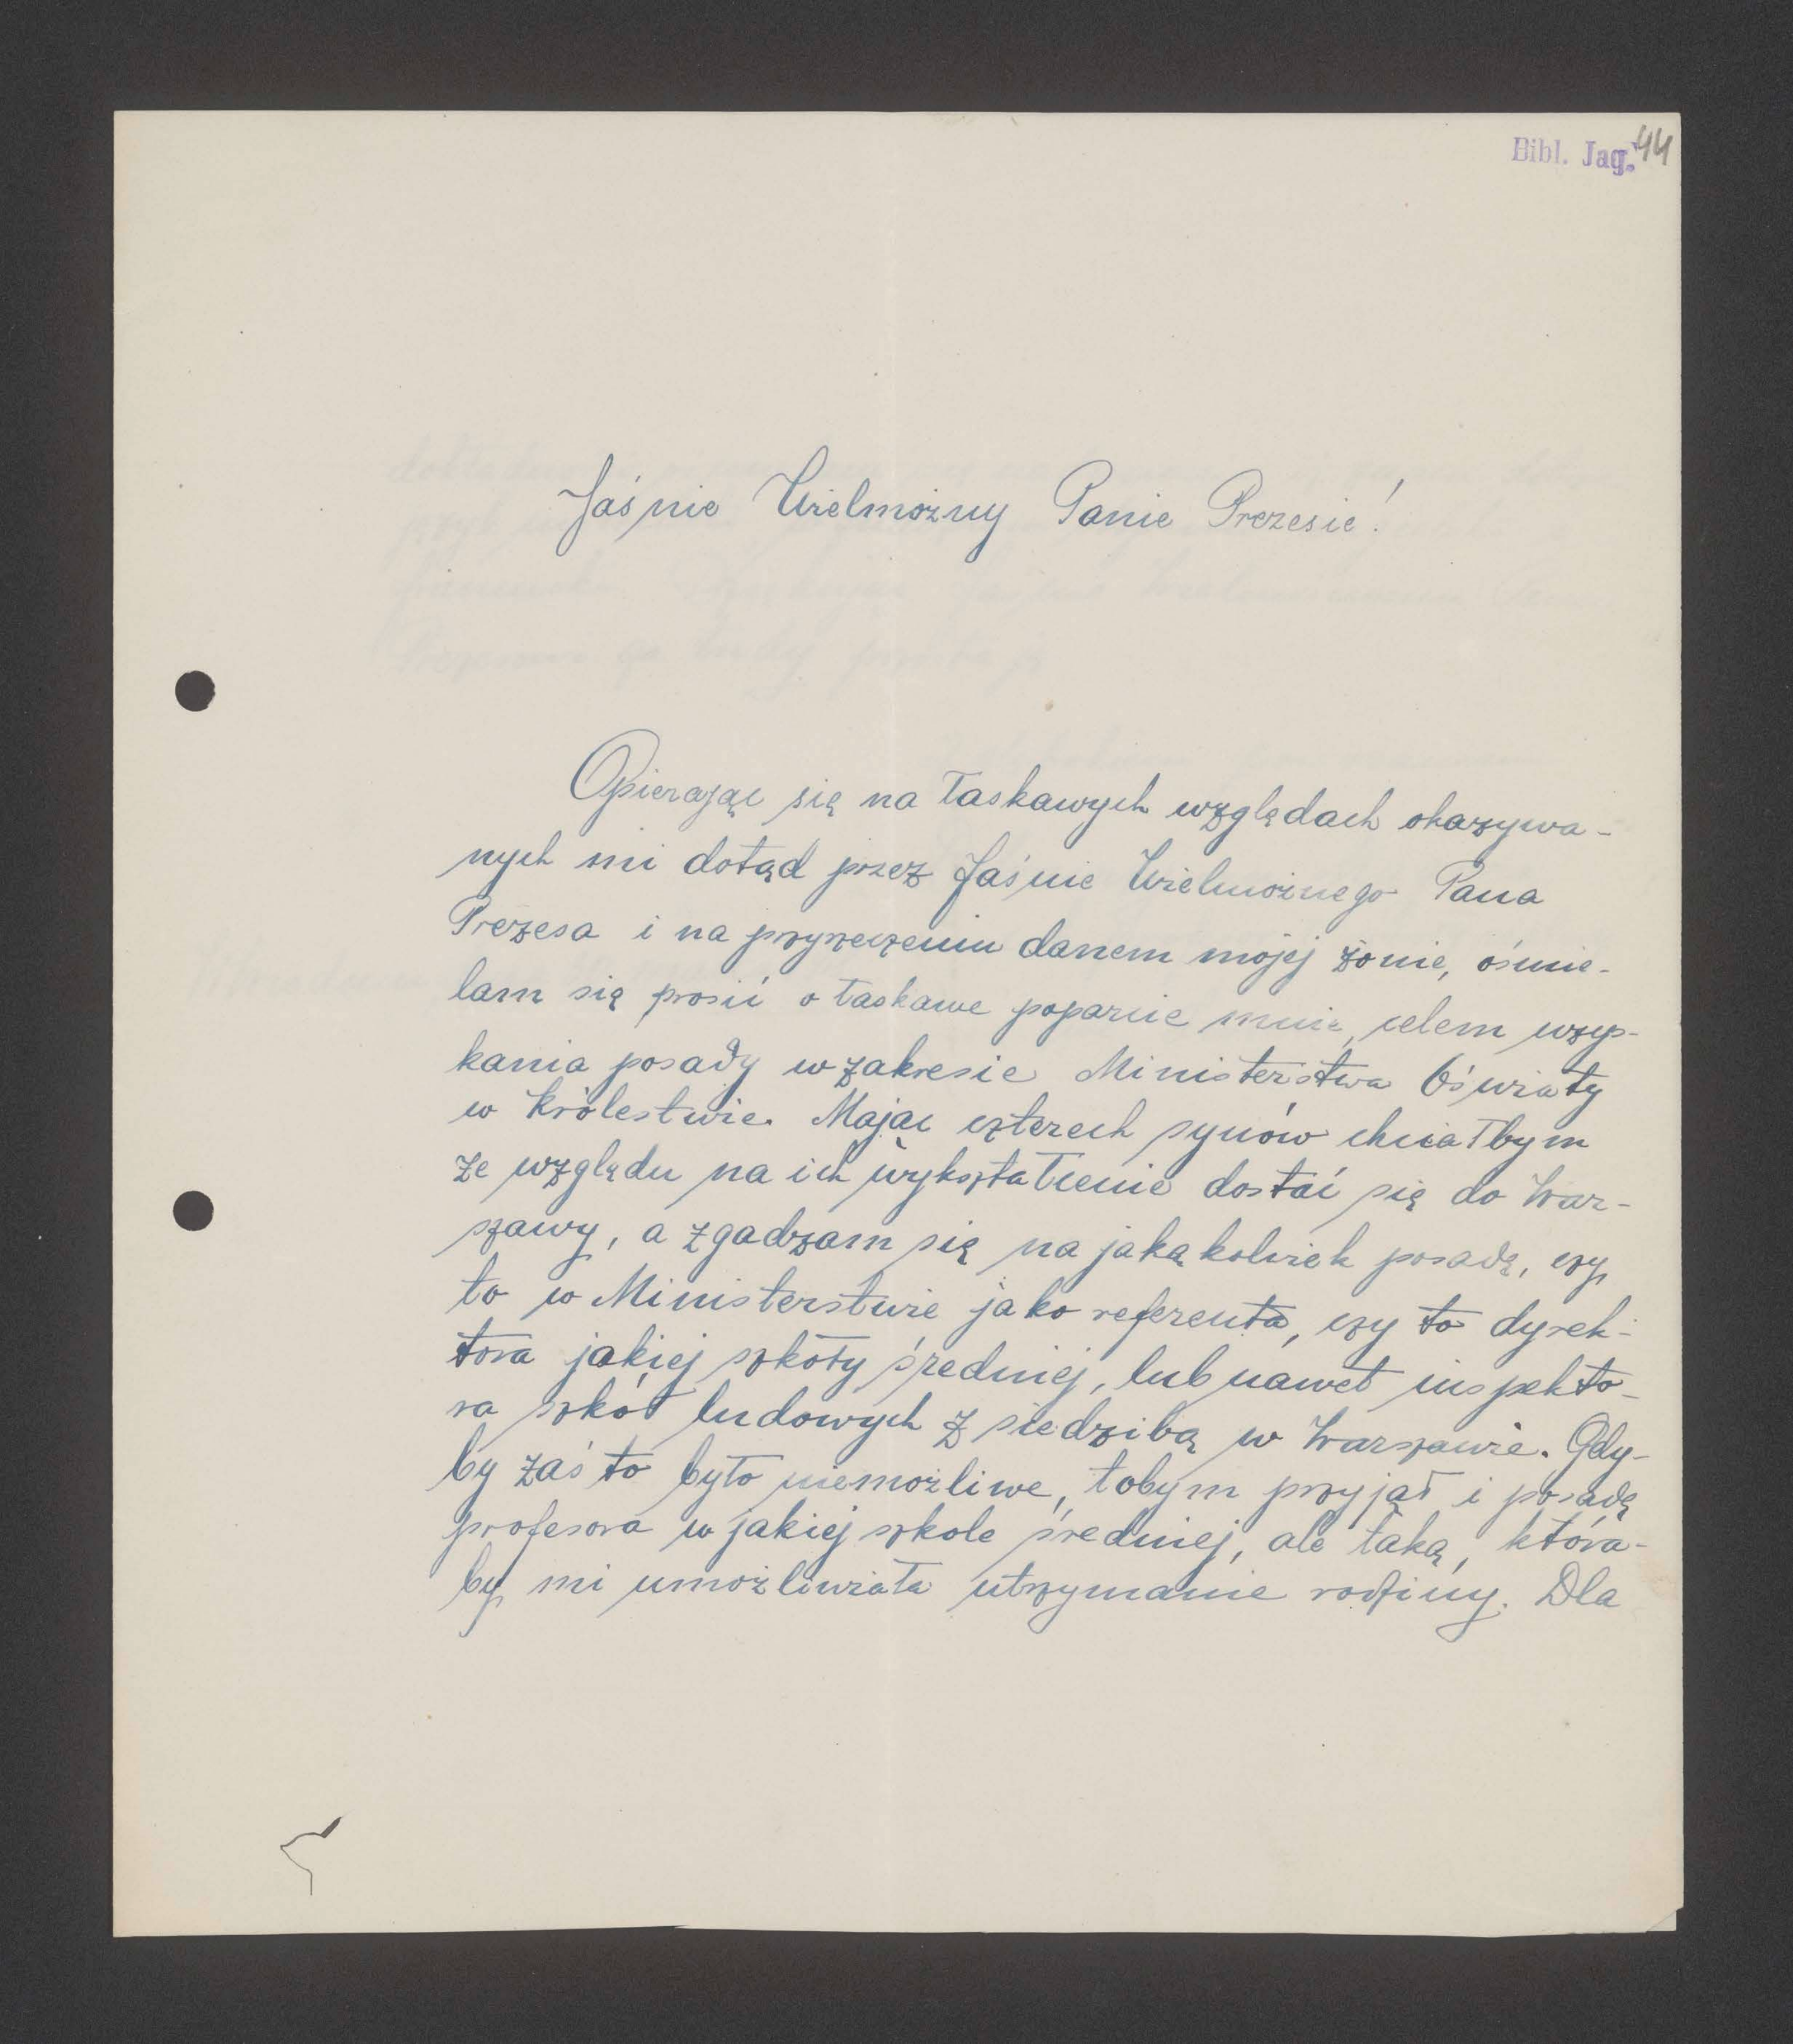 Bibl. Jag. 44
Jaśnie Wielmożny Panie Prezesie!
Opierając się na łaskawych względach okazywa-
nych mi dotąd przez Jaśnie Wielmożnego Pana
Prezesa i na przyrzeczeniu danem mojej żonie, ośmie-
lam się prosić o łaskawe poparcie mnie, celem uzys-
kania posady w zakresie Ministerstwa Oświaty
w Królestwie. Mając czterech synów chciałbym
ze względu na ich wykształcenie dostać się do War-
szawy, a zgadzam się na jakąkolwiek posadę, czy
to w Ministerstwie jako referenta, czy to dyrek-
tora jakiej szkoły średniej, lub nawet inspekto-
ra szkół ludowych z siedzibą w Warszawie. Gdy-
by zaś to było niemożliwe, tobym przyjął i posadę
profesora w jakiej szkole średniej, ale taką, która-
by mi umożliwiała utrzymanie rodziny. Dla